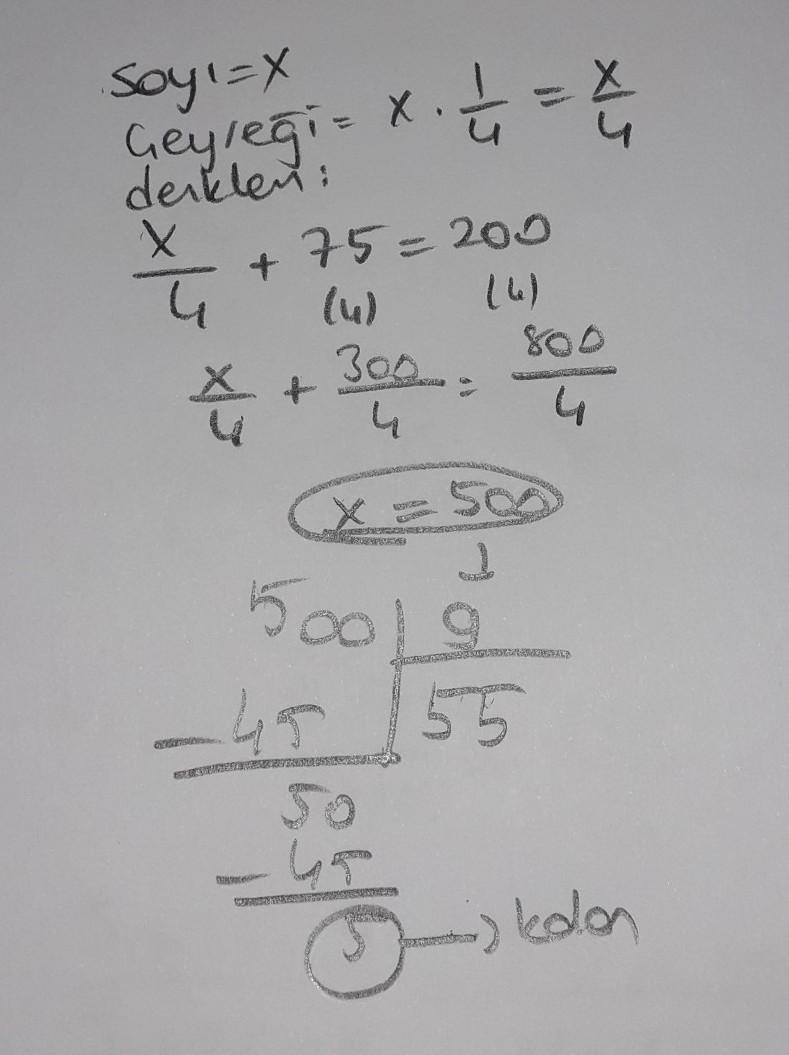 Sayı=x
Çeyreği= x · 1/4 = x/4
denklem:
x/4 + 75 = 200
(4) (4)
x/4 + 300/4 = 800/4
x = 500
500 | 9
-45 | 55
50
-45
5 → kalan